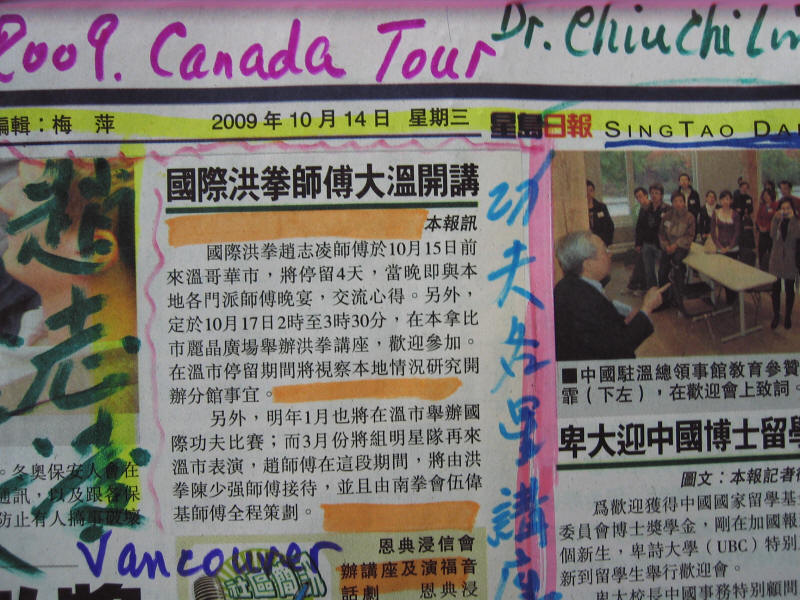 2009. Canada Tour
Dr. Chiu Chi Lin
編輯：梅 萍
2009年10月14日 星期三
星島日報 SINGTAO DA
趙志凌
國際洪拳師傅大溫開講
本報訊
國際洪拳趙志凌師傅於10月15日前
來溫哥華市，將停留4天，當晚即與本
地各門派師傅晚宴，交流心得。另外，
定於10月17日2時至3時30分，在本拿比
市麗晶廣場舉辦洪拳講座，歡迎參加。
在溫市停留期間將視察本地情況研究開
辦分館事宜。
另外，明年1月也將在溫市舉辦國
際功夫比賽；而3月份將組明星隊再來
溫市表演，趙師傅在這段期間，將由洪
拳陳少强師傅接待，並且由南拳會伍偉
基師傅全程策劃。
功夫名星講座
■中國駐溫總領事館教育參贊
霏（下左），在歡迎會上致詞。
卑大迎中國博士留學
圖文：本報記者
爲歡迎獲得中國國家留學基
委員會博士獎學金，剛在加國報
個新生，卑詩大學（UBC）特別
新到留學生舉行歡迎會。
卑大校長中國事務特別顧問
。冬奧保安人會在
通訊，以及跟各保
防止有人搞事破壞
Vancouver
社區簡訊
恩典浸信會
辦講座及演福音
話劇 恩典浸